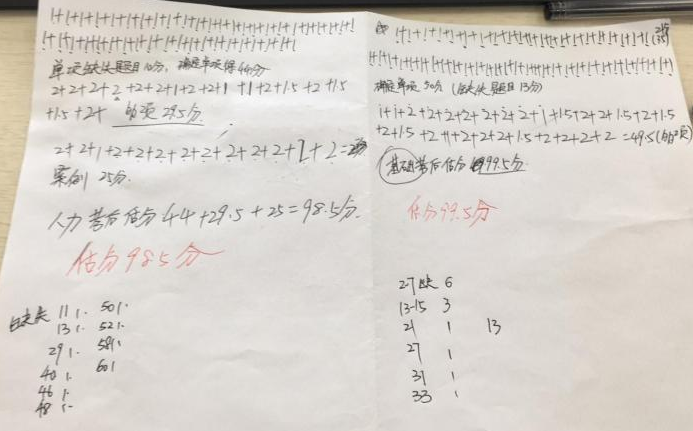 1+1+1+1+1+1+1+1+1+1+1+1+1+1+1+1+1+1+1+1+1+1+1+1+1+1
单项缺失题目10分，确定单项得44分
2+2+2+2+2+2+1+2+2+1+1+1+2+1.5+2+1.5
+1.5+2+ 多项29.5分
2+2+1+2+2+2+2+2+2+2+2+1+2=25分
案例 25分.
人力考后估分 44+29.5+25=98.5分.
估分98.5分
缺失 11 1. 50 1.
13 1. 52 1.
29 1. 58 1.
40 1. 60 1.
46 1.
48 1.
确定单项 50分 (缺失题目13分)
1+1+2+2+2+2+2+2+2+2+1+1.5+2+2+1.5+2+1.5
+2+1.5+2+1+2+2+2+1.5+2+2+2+2=49.5(多项)
基础考后估分 99.5分
估分99.5分
2-7缺 6
13-15 3
21 1 13
27 1
31 1
33 1